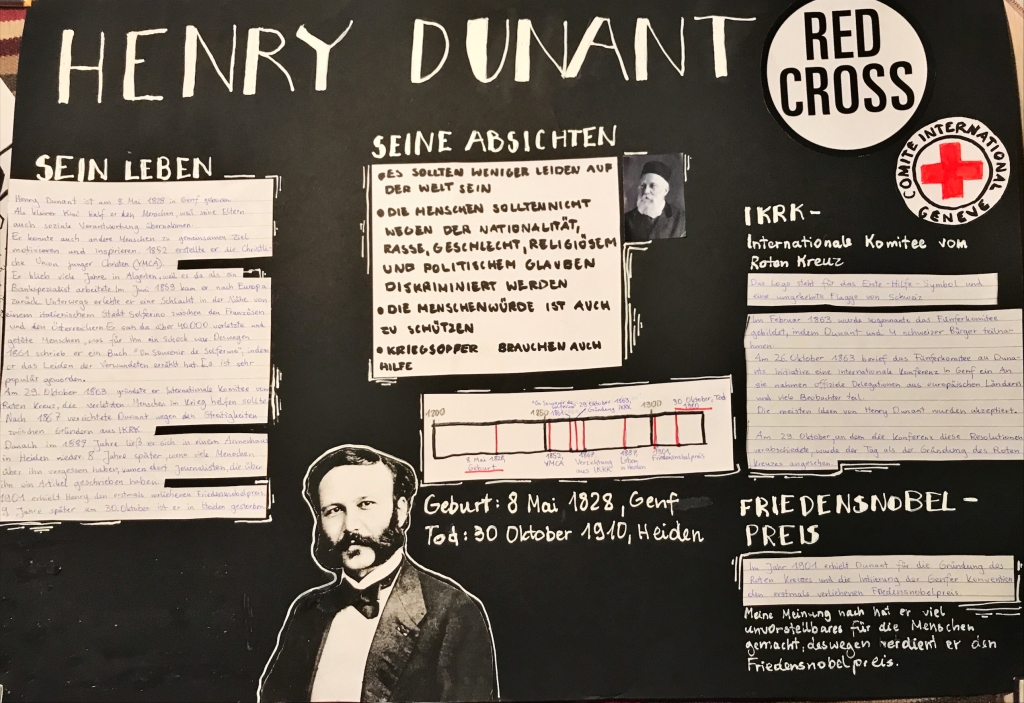 HENRY DUNANT
RED
CROSS
COMITE INTERNATIONAL
GENEVE
SEIN LEBEN
Henry Dunant ist am 8 Mai 1828 in Genf geboren.
Als kleiner Kind half er den Menschen, weil seine Eltern
auch soziale Verantwortung übernahmen.
Er konnte auch andere Menschen zu gemeinsamen Ziel
motivieren und inspirieren. 1852 erstellte er die Christli-
che Union junger Christen (YMCA).
Er blieb viele Jahre in Algerien, weil er da als ein
Bankspezialist arbeitete. Im Juni 1859 kam er nach Europa
zurück. Unterwegs erlebte er eine Schlacht in der Nähe von
einem italienischem Stadt Solferino zwischen den Französen
und den Österreichern. Er sah da über 40000 verletzte und
getöte Menschen, was für ihn ein Schock war. Deswegen
1861 schrieb er ein Buch "Un Souvenir de Solferino", indem
er das Leiden der Verwundeten erzählt hat. Es ist sehr
populär geworden.
Am 29. Oktober 1863 gründete er Internationale Komitee vom
Roten Kreuz, die verletzten Menschen im Krieg helfen sollte.
Nach 1867 verzichtete Dunant wegen den Streitigkeiten
zwischen Gründern aus IKRK.
Danach im 1887 Jahre ließ er sich in einem Armenhaus
in Heiden nieder. 8 Jahre später, wenn viele Menschen
über ihn vergessen haben, kamen dort Journalisten, die über
ihn ein Artikel geschrieben haben.
1901 erhielt Henry den erstmals verliehenen Friedensnobelpreis.
9 Jahre später am 30. Oktober ist er in Heiden gestorben.
SEINE ABSICHTEN
• ES SOLLTEN WENIGER LEIDEN AUF
DER WELT SEIN
• DIE MENSCHEN SOLLTEN NICHT
WEGEN DER NATIONALITÄT,
RASSE, GESCHLECHT, RELIGIÖSEM
UND POLITISCHEM GLAUBEN
DISKRIMINIERT WERDEN
• DIE MENSCHENWÜRDE IST AUCH
ZU SCHÜTZEN
• KRIEGSOPFER BRAUCHEN AUCH
HILFE
"Un Souvenir de
Solferino"
1861
29 Oktober 1863,
Gründung IKRK
30 Oktober, Tod
1910
1200
1850
1900
8 Mai 1828,
Geburt
1852,
YMCA
1867
Verzichtung
aus IKRK
1887
Leben
in Heiden
1901,
Friedensnobelpreis
Geburt: 8 Mai 1828, Genf
Tod: 30 Oktober 1910, Heiden
IKRK-
Internationale Komitee vom
Roten Kreuz
Das Logo steht für das Erste-Hilfe-Symbol und
eine umgekehrte Flagge von Schweiz
Im Februar 1863 wurde sogenannte das Fünferkomitee
gebildet, indem Dunant und 4 schweizer Bürger teilnah-
men.
Am 26 Oktober 1863 berief das Fünferkomitee au Duna-
nts Initiative eine Internationale Konferenz in Genf ein. An
sie nahmen offizielle Delegationen aus europäischen Ländern
und viele Beobachter teil.
Die meisten Ideen von Henry Dunant wurden akzeptiert.
Am 29 Oktober, an dem die Konferenz diese Resolutionen
verabschiedete, wurde der Tag als der Gründung des Roten
Kreuzes angesehen.
FRIEDENSNOBEL-
PREIS
Im Jahr 1901 erhielt Dunant für die Gründung des
Roten Kreuzes und die Initiierung der Genfer Konvention
den erstmals verliehenen Friedensnobelpreis.
Meine Meinung nach hat er viel
unvorstellbares für die Menschen
gemacht, deswegen verdient er den
Friedensnobelpreis.